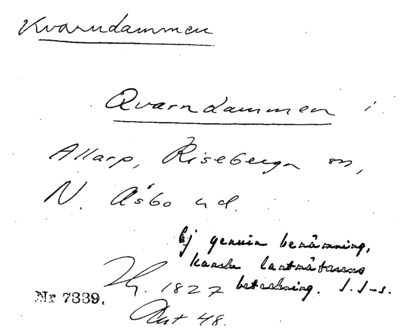 Kvarndammen
Qvarndammen i
Allarp, Riseberga sn,
N. Åsbo hd.
Ej genuin benämning,
kanske lantmätarens
beteckning. S.S-s.
1827
Nr 7339.
Akt 48.